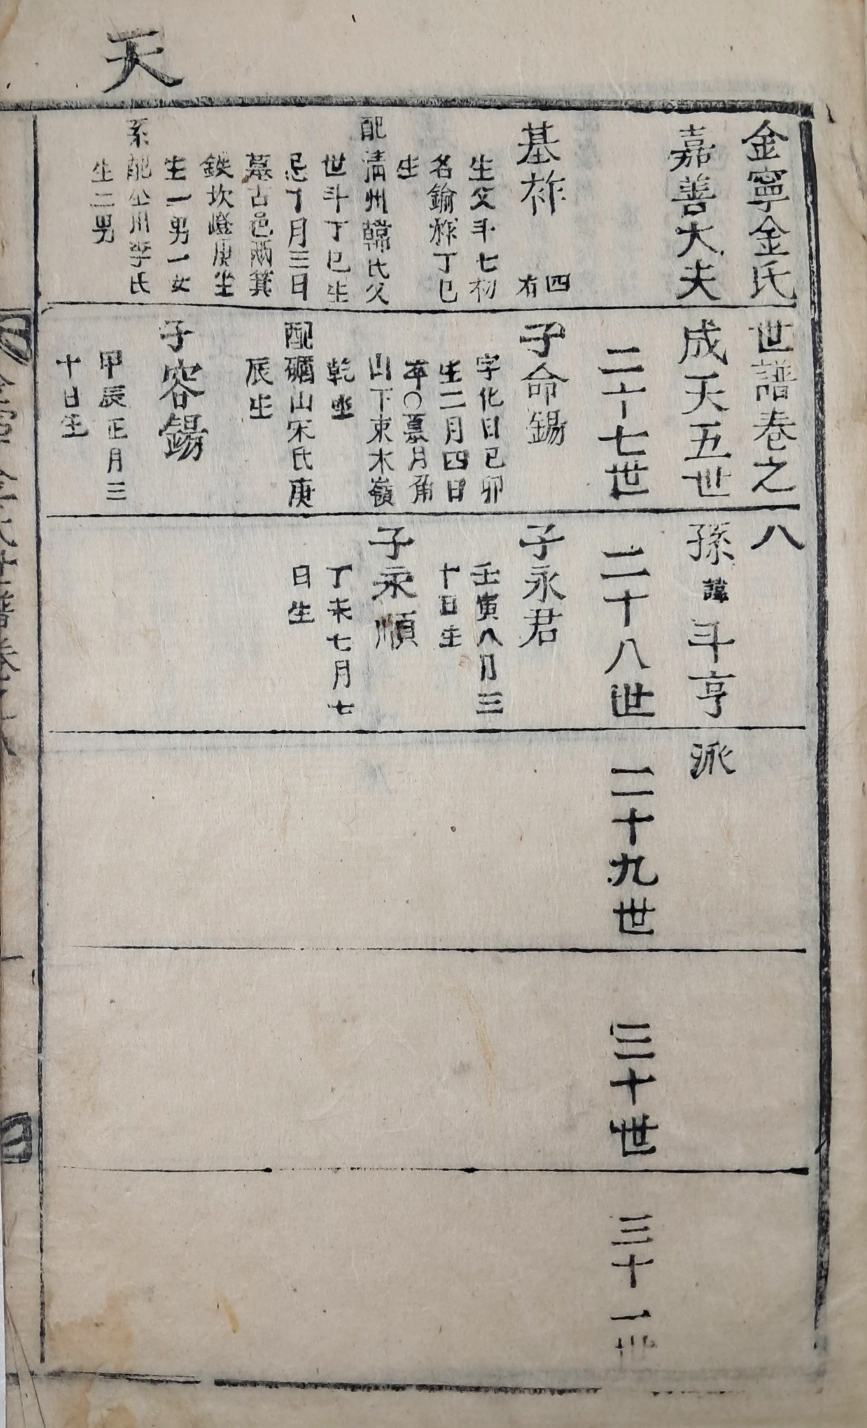 天
金寧金氏世譜卷之八
嘉善大夫成天五世孫諱斗亨派
二十七世
二十八世
二十九世
三十世
三十一世
基祚 四有
生父斗七初
名鍮祚丁巳
生
配清州韓氏父
世斗丁巳生
忌丁月三日
墓古邑面箕
鉄坎嶝庚坐
生一男一女
系配公州李氏
生二男
子命錫
字化日己卯
生二月四日
卒〇墓月角
山下東木嶺
乾坐
配礪山宋氏庚
辰生
子容錫
甲辰正月三
十日生
子永君
壬寅八月三
十日生
子永順
丁未七月七
日生
金寧金氏世譜卷之八
一